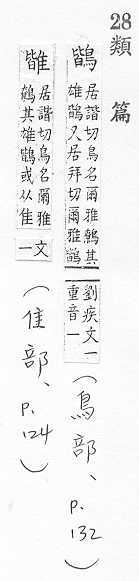 28
類篇
鶛
居諧切鳥名爾雅鶉其
雄鶛又居拜切爾雅鶛
劉疾文一
重音一
（鳥部、p.132）
居諧切鳥名爾雅
鶉其雄鶛或从隹
文一
（隹部、p.124）